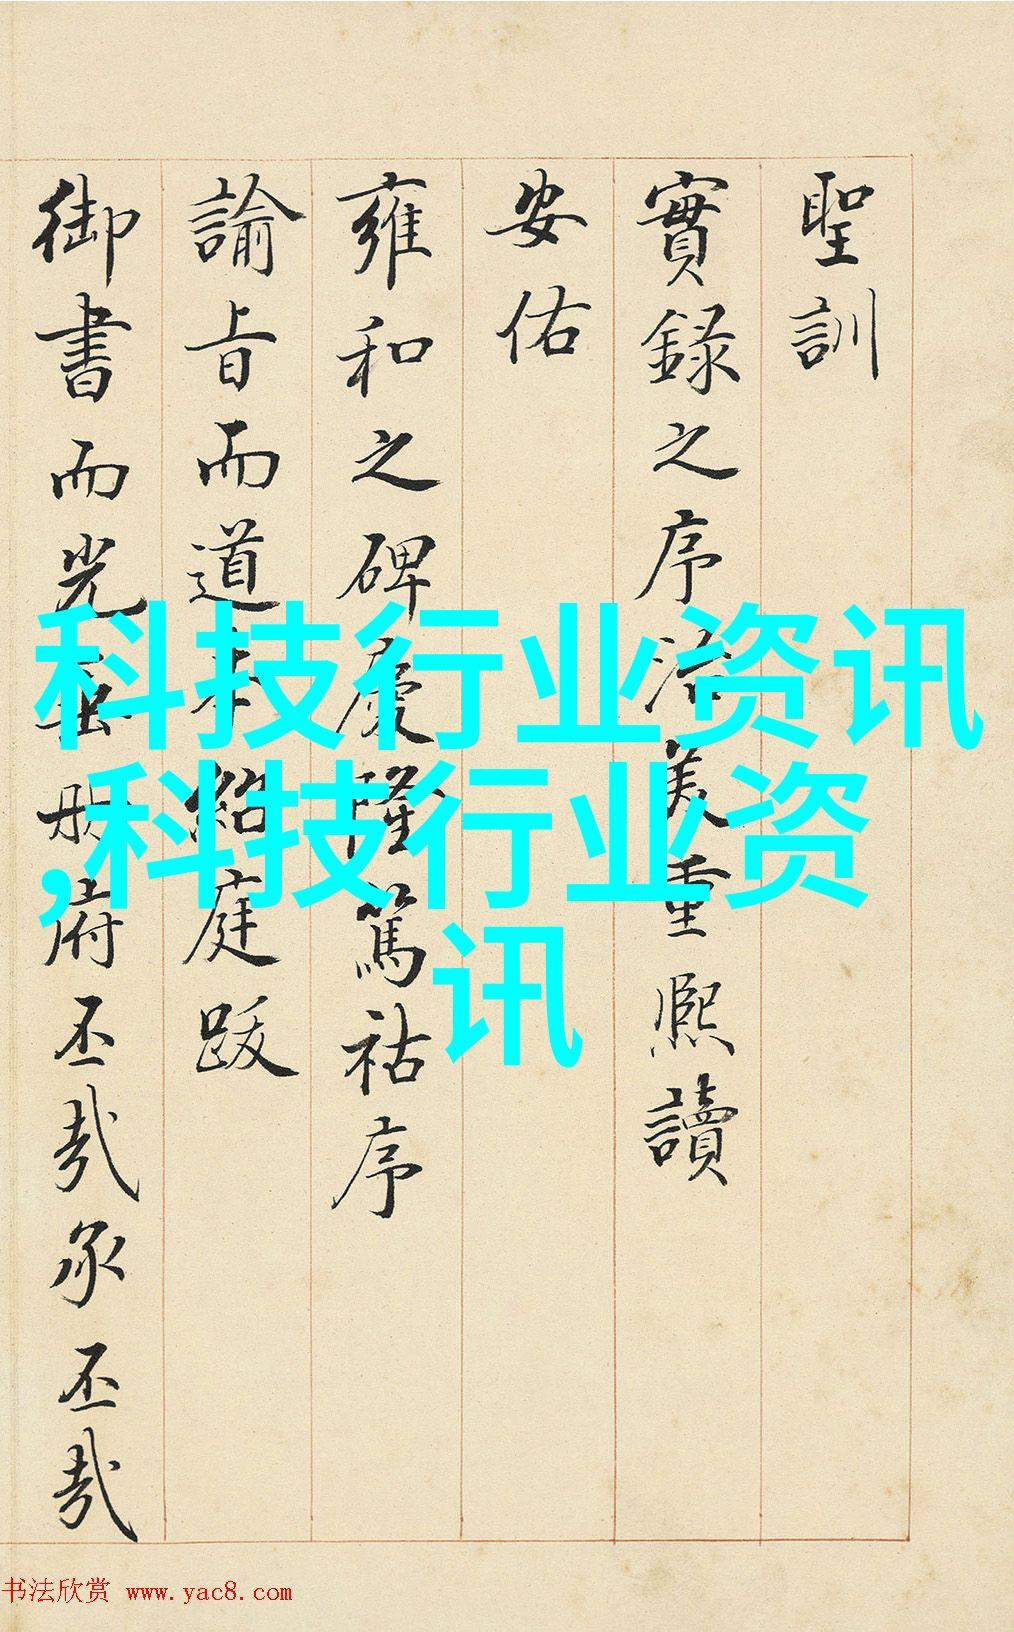 聖訓
實録之序洽美重熙讀
安佑
雍和之碑慶隆篤祜序
諭旨而道本紹庭跋
御書而光垂册府丕㢤承丕㢤
科技行业资讯
,科技行业资
讯
书法欣赏 www.yac8.com